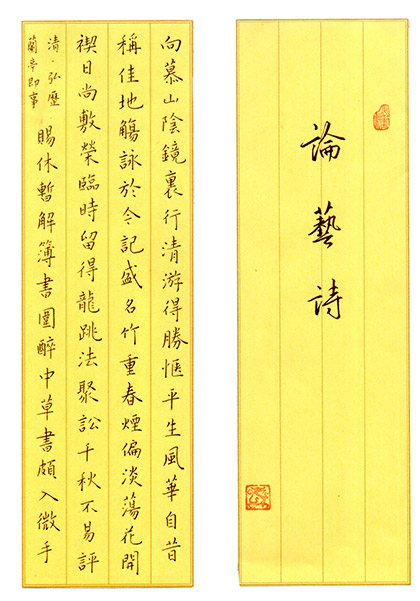 論藝詩
向慕山陰鏡裏行清游得勝愜平生風華自昔
稱佳地觴詠於今記盛名竹重春煙偏淡蕩花開
禊日尚敷榮臨時留得龍跳法聚訟千秋不易評
清·弘歷
蘭亭即事
賜休暫解簿書圍醉中草書頗入微手